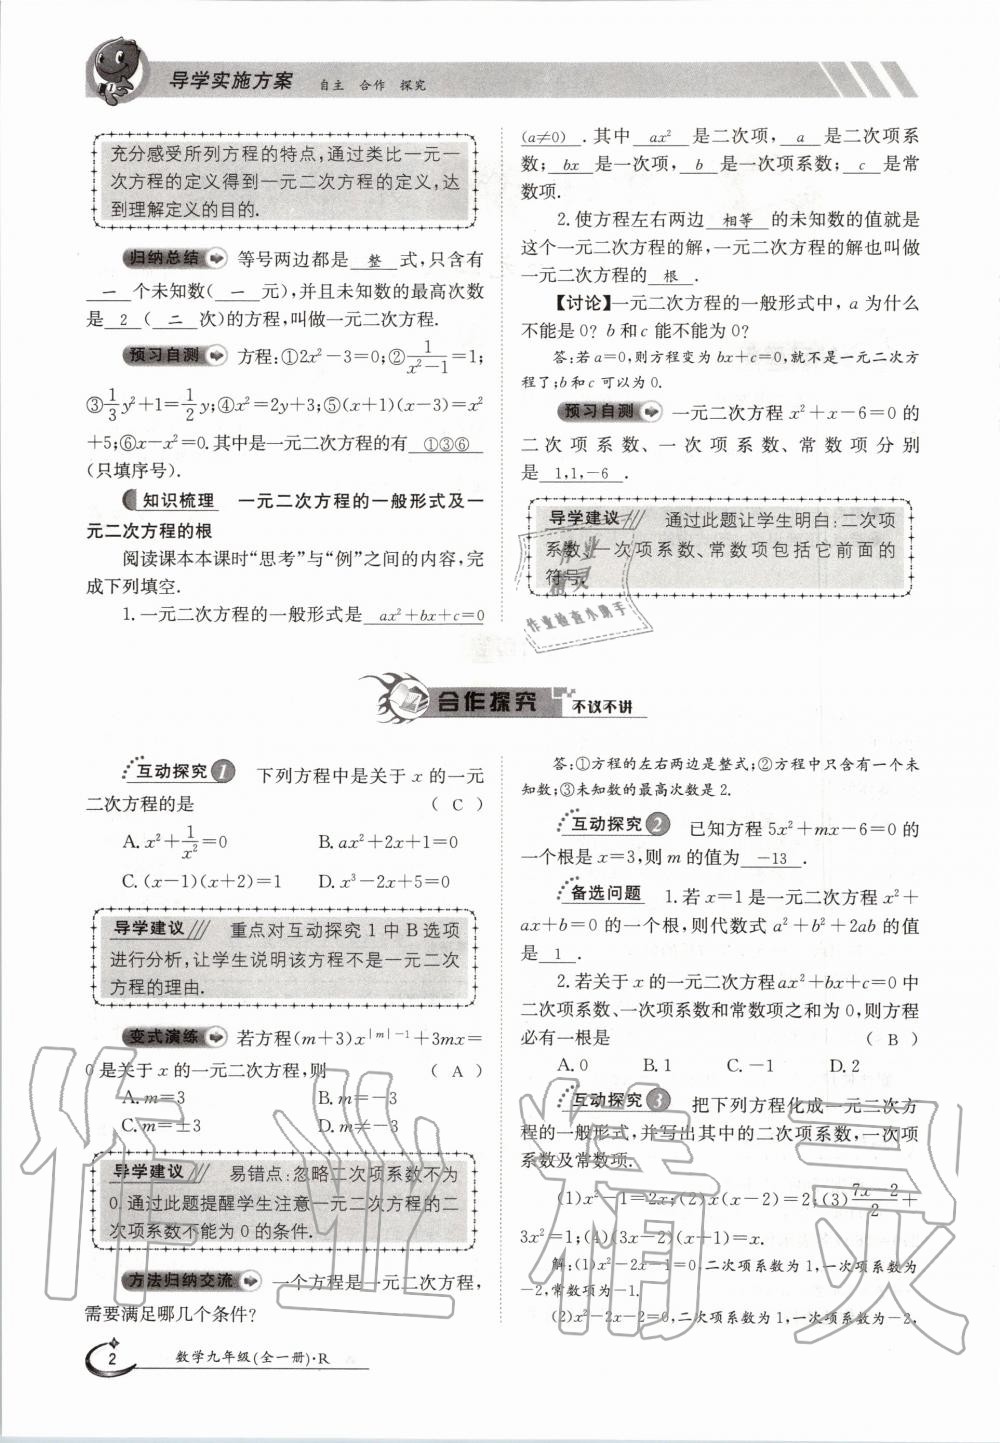 导学实施方案 自主 合作 探究
充分感受所列方程的特点,通过类比一元一
次方程的定义得到一元二次方程的定义,达
到理解定义的目的.
归纳总结 等号两边都是 整 式,只含有
一 个未知数( 一 元),并且未知数的最高次数
是 2 ( 二 次)的方程,叫做一元二次方程.
预习自测 方程:①2x²-3=0;②1/(x²-1)=1;
③1/3y²+1=1/2y;④x²=2y+3;⑤(x+1)(x-3)=x²
+5;⑥x-x²=0.其中是一元二次方程的有 ①③⑥
(只填序号).
知识梳理 一元二次方程的一般形式及一
元二次方程的根
阅读课本本课时“思考”与“例”之间的内容,完
成下列填空.
1.一元二次方程的一般形式是 ax²+bx+c=0
(a≠0) .其中 ax² 是二次项, a 是二次项系
数; bx 是一次项, b 是一次项系数; c 是常
数项.
2.使方程左右两边 相等 的未知数的值就是
这个一元二次方程的解,一元二次方程的解也叫做
一元二次方程的 根 .
【讨论】一元二次方程的一般形式中,a 为什么
不能是 0? b 和 c 能不能为 0?
答:若 a=0,则方程变为 bx+c=0,就不是一元二次方
程了;b 和 c 可以为 0.
预习自测 一元二次方程 x²+x-6=0 的
二次项系数、一次项系数、常数项分别
是 1,1,-6 .
导学建议 通过此题让学生明白:二次项
系数、一次项系数、常数项包括它前面的
符号.
作业
精灵
作业检查小助手
合作探究 不议不讲
互动探究 1 下列方程中是关于 x 的一元
二次方程的是 ( C )
A. x²+1/x²=0 B. ax²+2x+1=0
C. (x-1)(x+2)=1 D. x³-2x+5=0
导学建议 重点对互动探究 1 中 B 选项
进行分析,让学生说明该方程不是一元二次
方程的理由.
变式演练 若方程(m+3)x^(|m|-1)+3mx=
0 是关于 x 的一元二次方程,则 ( A )
A. m=3 B. m=-3
C. m=±3 D. m≠-3
导学建议 易错点:忽略二次项系数不为
0.通过此题提醒学生注意一元二次方程的二
次项系数不能为 0 的条件.
方法归纳交流 一个方程是一元二次方程,
需要满足哪几个条件?
答:①方程的左右两边是整式;②方程中只含有一个未
知数;③未知数的最高次数是 2.
互动探究 2 已知方程 5x²+mx-6=0 的
一个根是 x=3,则 m 的值为 -13 .
备选问题 1.若 x=1 是一元二次方程 x²+
ax+b=0 的一个根,则代数式 a²+b²+2ab 的值
是 1 .
2.若关于 x 的一元二次方程 ax²+bx+c=0 中
二次项系数、一次项系数和常数项之和为 0,则方程
必有一根是 ( B )
A. 0 B. 1 C. -1 D. 2
互动探究 3 把下列方程化成一元二次方
程的一般形式,并写出其中的二次项系数,一次项
系数及常数项.
(1)x²-1=2x;(2)x(x-2)=2;(3)(7x-2)/2+
3x²=1;(4)(3x-2)(x+1)=x.
解:(1)x²-2x-1=0,二次项系数为 1,一次项系数为
-2,常数项为-1.
(2)x²-2x-2=0,二次项系数为 1,一次项系数为-2,
2 数学九年级(全一册)·R
作业精灵